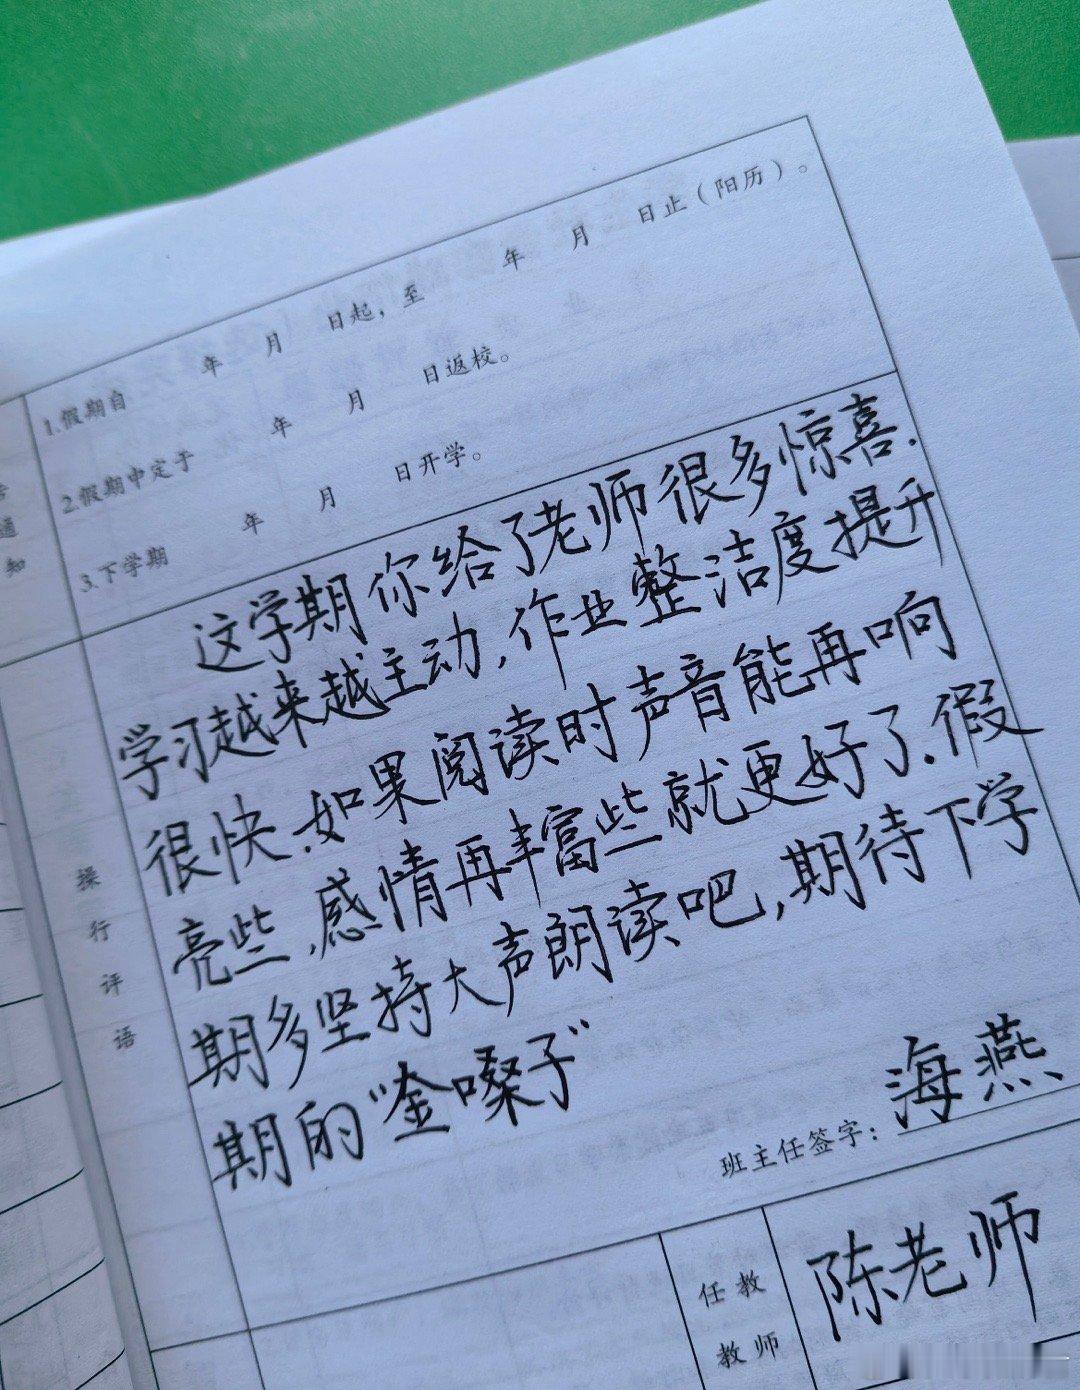 1.假期自 年 月 日起，至 年 月 日止（阳历）。
2.假期中定于 年 月 日返校。
3.下学期 年 月 日开学。
通
知
这学期你给了老师很多惊喜.
学习越来越主动,作业整洁度提升
很快.如果阅读时声音能再响
亮些,感情再丰富些就更好了.假
期多坚持大声朗读吧,期待下学
期的"金嗓子"
操
行
评
语
班主任签字：海燕
任教
教师
陈老师